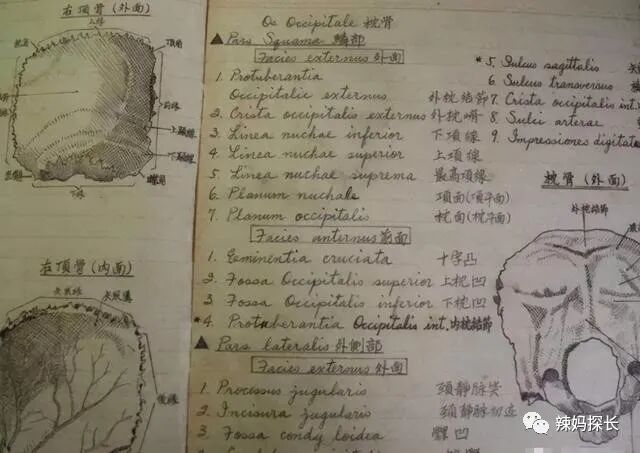 右頂骨(外面)
上緣
頂角
前緣
上顳線
下顳線
下緣
右頂骨(内面)
矢狀緣
後緣
Os Occipitale 枕骨
▲Pars Squama 鱗部
Facies externus 外面
1. Protuberantia
Occipitalic externus 外枕結節
2. Crista occipitalis externus 外枕嵴
3. Linea nuchae inferior 下項線
4. Linea nuchae superior 上項線
5. Linea nuchae suprema 最高項線
6. Planum nuchale 項面(項平面)
7. Planum occipitalis 枕面(枕平面)
Facies anternus 前面
1. Eminentia cruciata 十字凸
2. Fossa Occipitalis superior 上枕凹
3. Fossa Occipitalis inferior 下枕凹
*4. Protuberantia Occipitalis int. 内枕結節
▲Pars lateralis 外側部
Facies externus 外面
1. Processus jugularis 頸靜脈突
2. Incisura jugularis 頸靜脈切迹
3. Fossa condyloidea 髁凹
*5. Sulcus sagittalis
6. Sulcus transversus
7. Crista occipitalis int.
8. Sulci arterae
9. Impressiones digitata
枕骨(外面)
外枕結節
辣妈探长